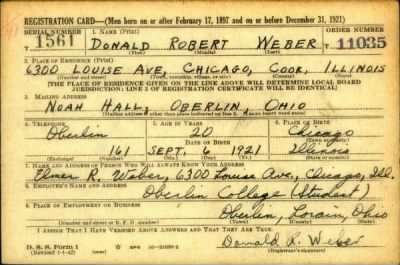 REGISTRATION CARD—(Men born on or after February 17, 1897 and on or before December 31, 1921)
SERIAL NUMBER 1. NAME (Print) ORDER NUMBER
T 1561 DONALD ROBERT WEBER 11035
(First) (Middle) (Last)
2. PLACE OF RESIDENCE (Print)
6300 LOUISE AVE, CHICAGO, COOK, ILLINOIS
(Number and street) (Town, township, village, or city) (County) (State)
[THE PLACE OF RESIDENCE GIVEN ON THE LINE ABOVE WILL DETERMINE LOCAL BOARD
JURISDICTION; LINE 2 OF REGISTRATION CERTIFICATE WILL BE IDENTICAL]
3. MAILING ADDRESS
NOAH HALL, OBERLIN, OHIO
4. TELEPHONE 5. AGE IN YEARS 6. PLACE OF BIRTH
Oberlin 20 Chicago
DATE OF BIRTH
161 SEPT. 6 1921 Illinois
(Exchange) (Number) (Mo.) (Day) (Yr.) (State or country)
7. NAME AND ADDRESS OF PERSON WHO WILL ALWAYS KNOW YOUR ADDRESS
Elmer R. Weber, 6300 Louise Ave., Chicago, Ill.
8. EMPLOYER'S NAME AND ADDRESS
Oberlin College (Student)
9. PLACE OF EMPLOYMENT OR BUSINESS
Oberlin, Lorain, Ohio
(Number and street or R. F. D. number) (Town) (County) (State)
I AFFIRM THAT I HAVE VERIFIED ABOVE ANSWERS AND THAT THEY ARE TRUE.
Donald R. Weber
D. S. S. Form 1
(Revised 1-1-42) (Registrant's signature)